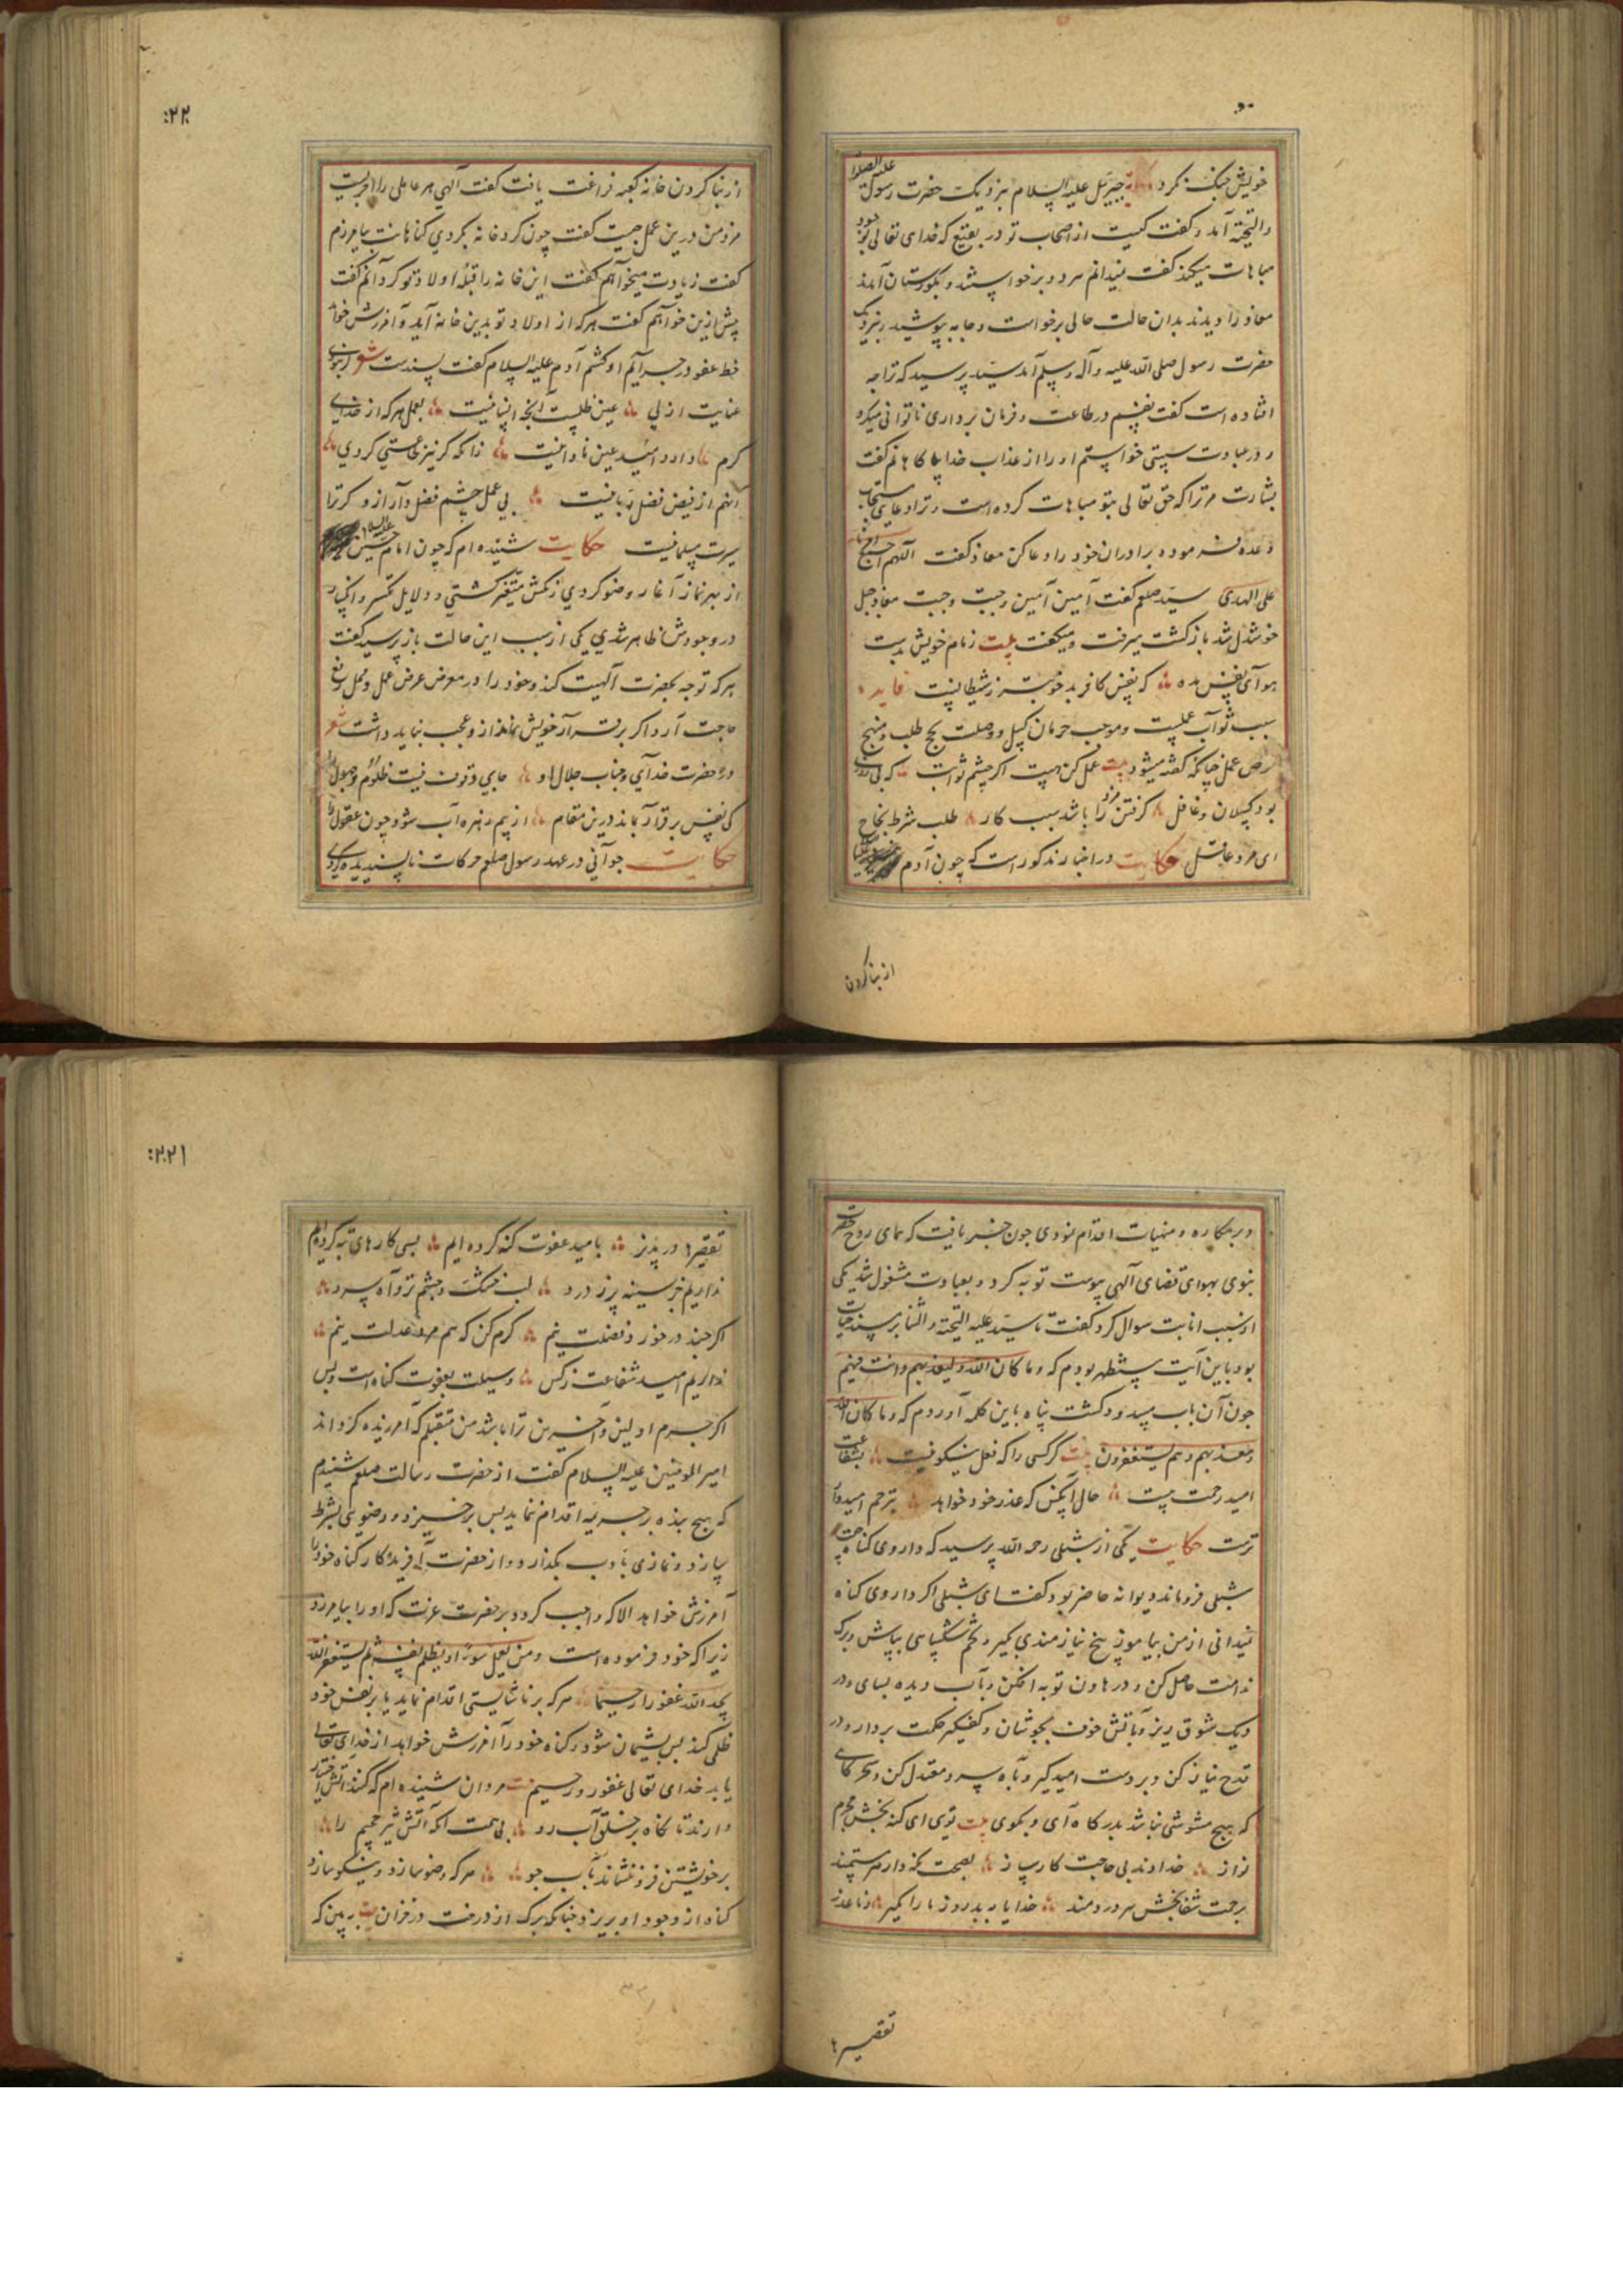 خویش جنک نکرد جبرئیل علیه السلام بنزدیک حضرت رسول علیه الصلوة
والتحیة آمد و کفت کیست از اصحاب تو در بقیع که خدای تعالی بوجود
مباهات میکند کفت نمیدانم هر دو برخواستند و بکورستان آمدند
معاذ را دیدند بدان حالت حالی برخواست و جامه بپوشید و بنزدیک
حضرت رسول صلی الله علیه و آله وسلم آمد سید پرسید که ترا چه
افتاده است کفت نفسم در طاعت و فرمان برداری ناتوانی میکرد
و در عبادت سستی خواستم او را از عذاب خدای آکاهانم کفت
بشارت مر ترا که حق تعالی بتو مباهات کرده است و ترا دعای مستجاب
وعده فرموده برادران خود را دعا کن معاذ کفت اللهم اجمع
علی الهدی سید صلعم کفت آمین آمین وجبت وجبت معاذ دل
خوشدل شد بازکشت میرفت و میکفت بیت زمام خویش بدست
هوای نفس مده که نفس کافر بد خوبتر ز شیطانیست فایده
سبب ثواب عملست و موجب حرمان کسل و وصلت بحج طلب و منهج
عمل چنانکه کفته میشود بیت عمل کن هست اکر چشم ثوابت که بی
بود کسلان و غافل کرفتن مزد را باشد سبب کار طلب شرط نجاح
ای مرد عاقل حکایت در اخبار مذکور است که چون آدم
از بنا کردن
۲۲۰
از بنا کردن خانه کعبه فراغت یافت کفت الهی هر عاملی را اجریست
مزد من درین عمل چیست کفت چون کرد خانه بکردی کناهانت بیامرزم
کفت زیادت میخواهم کفت این خانه را قبله اولاد تو کردانم کفت
بیش ازین خواهم کفت هر که از اولاد تو بدین خانه آید و آمرزش خواهد
خط عفو در جرایم او کشم آدم علیه السلام کفت پسندست شعر
عنایت ازلی عین طلبست آنچه انسانیست بعمل هر که از خدای
کرم دارد امید عین نادانیست زانکه کر نیز عملستی کردی
آنهم از فیض فضل ربانیست بی عمل چشم فضل دار ازو کر ترا
سیرت مسلمانیست حکایت شنیده ام که چون امام حسین علیه السلام
از بهر نماز آغاز وضو کردی رنکش متغیر کشتی و دلایل تحسر و انکسار
در وجودش ظاهر شدی یکی از سبب این حالت باز پرسید کفت
هر که توجه بحضرت الهیت کند و خود را در معرض عرض عمل و محل رفع
حاجت آرد اکر برقرار خویش نماند از و عجب نباید داشت شعر
در حضرت خدای و جناب جلال او جای وقوف نیست ظلوم و جهول را
کی نفس برقرار بماند درین مقام از بیم زهره آب شود چون عقول را
حکایت جوانی در عهد رسول صلعم حرکات ناپسندیده کردی
و بر مکاره و منهیات اقدام نمودی چون خبر یافت که همای روح حضرت
نبوی بهوای قضای الهی پیوست توبه کرد و بعبادت مشغول شد یکی
از سبب انابت سوال کرد کفت تا سید علیه التحیة و الثنا بر مسند حیات
بود باین آیت مستظهر بودم که و ما کان الله لیعذبهم و انت فیهم
چون آن باب مسدود کشت پناه باین کلمه آوردم که و ما کان الله
معذبهم و هم یستغفرون بیت کر کسی را که فعل نیکو نیست بشفاعت
امید رحمت نیست حال آنکس که عذر خود خواهد بترحم امیدوار
ترست حکایت یکی از شبلی رحمه الله پرسید که داروی کناه چیست
شبلی فروماند دیوانه حاضر بود کفت ای شبلی اکر داروی کناه
نمیدانی از من بیاموز بیخ نیازمندی بکیر و تخم شکیبایی بپاش و برک
ندامت حاصل کن و در هاون توبه افکن و بآب دیده بسای و در
دیک شوق ریز و بآتش خوف بجوشان و کفکیر حکمت بردار و در
قدح نیاز کن و بر دست امید کیر و بآه سرد معتدل کن و سحر کاهی
که هیچ مشوشی نباشد بدرکاه آی و بکوی بیت توی ای کنه بخش مجرم
نواز خداوند بی حاجت کارساز بصحت نکه دار هر مستمند
برحمت شفابخش هر دردمند خدایا ببد روز ما را مکیر ز ما عذر
تقصیرها
۲۲۱
تقصیرها در پذیر بامید عفوت کنه کرده ایم بسی کارهای تبه کرده ایم
نداریم جز سینه پر ز درد لب خشک و چشم تر و آه سرد
اکر چند در خورد فضلت نیم کرم کن که هم مرد عدلت نیم
نداریم امید شفاعت ز کس وسیلت بعفوت کناه است و بس
اکر جرم اولین و آخرین ترا باشد من متقبلم که آمرزیده کرداند
امیر المومنین علیه السلام کفت از حضرت رسالت صلعم شنیدم
که هیچ بنده بر جریمه اقدام ننماید پس برخیزد و وضوی بشرط
بسازد و نمازی بادب بکذارد و از حضرت آفریدکار کناه خود را
آمرزش خواهد الا که واجب کردد بر حضرت عزت که او را بیامرزد
زیرا که خود فرموده است و من یعمل سوءا او یظلم نفسه ثم یستغفر الله
یجد الله غفورا رحیما هر که بر ناشایستی اقدام نماید یا بر نفس خود
ظلمی کند پس پشیمان شود و کناه خود را آمرزش خواهد از خدای تعالی
یابد خدای تعالی غفور و رحیم بیت مردان شنیده ام که کنند آتش اختیار
دارند تا نکاه بر خلق آب رو بی همت آنکه آتش تیز جحیم را
بر خویشتن فرو ننشاند بآب جو هر که وضو سازد و نیکو سازد
کناه از وجود او بریزد چنانکه برک از درخت در خزان بیت ببین که